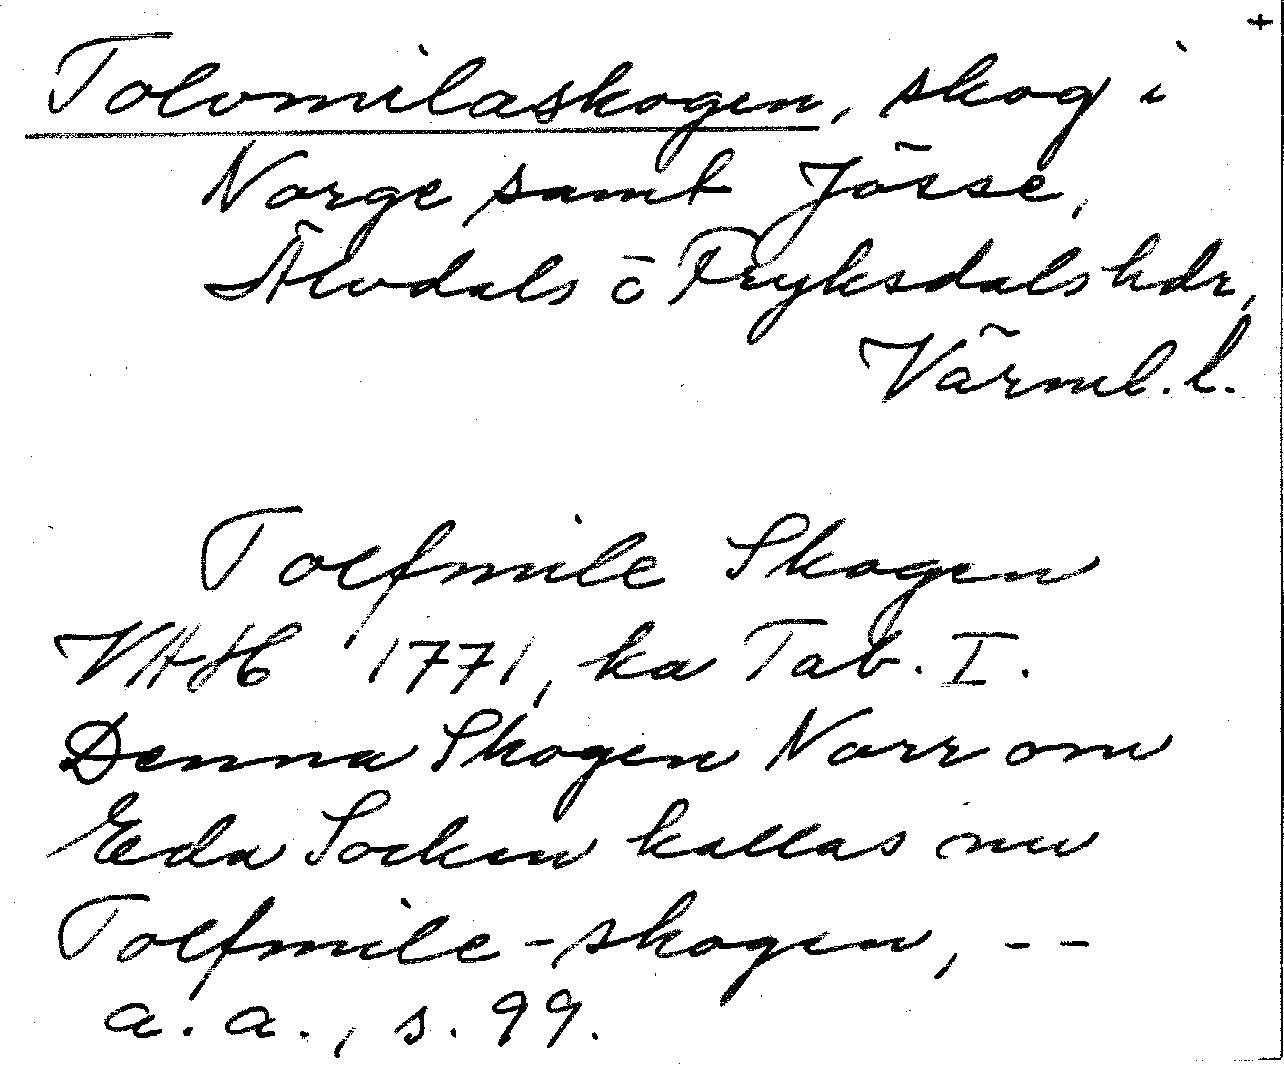 +
Tolvmilaskogen, skog i
Norge samt Jösse,
Älvdals o Fryksdals hdr,
Värml. l.
Tolfmile Skogen
VAH 1771, ka Tab. I.
Denna Skogen Norr om
Eda Socken kallas nu
Tolfmile-skogen, --
a.a., s. 99.